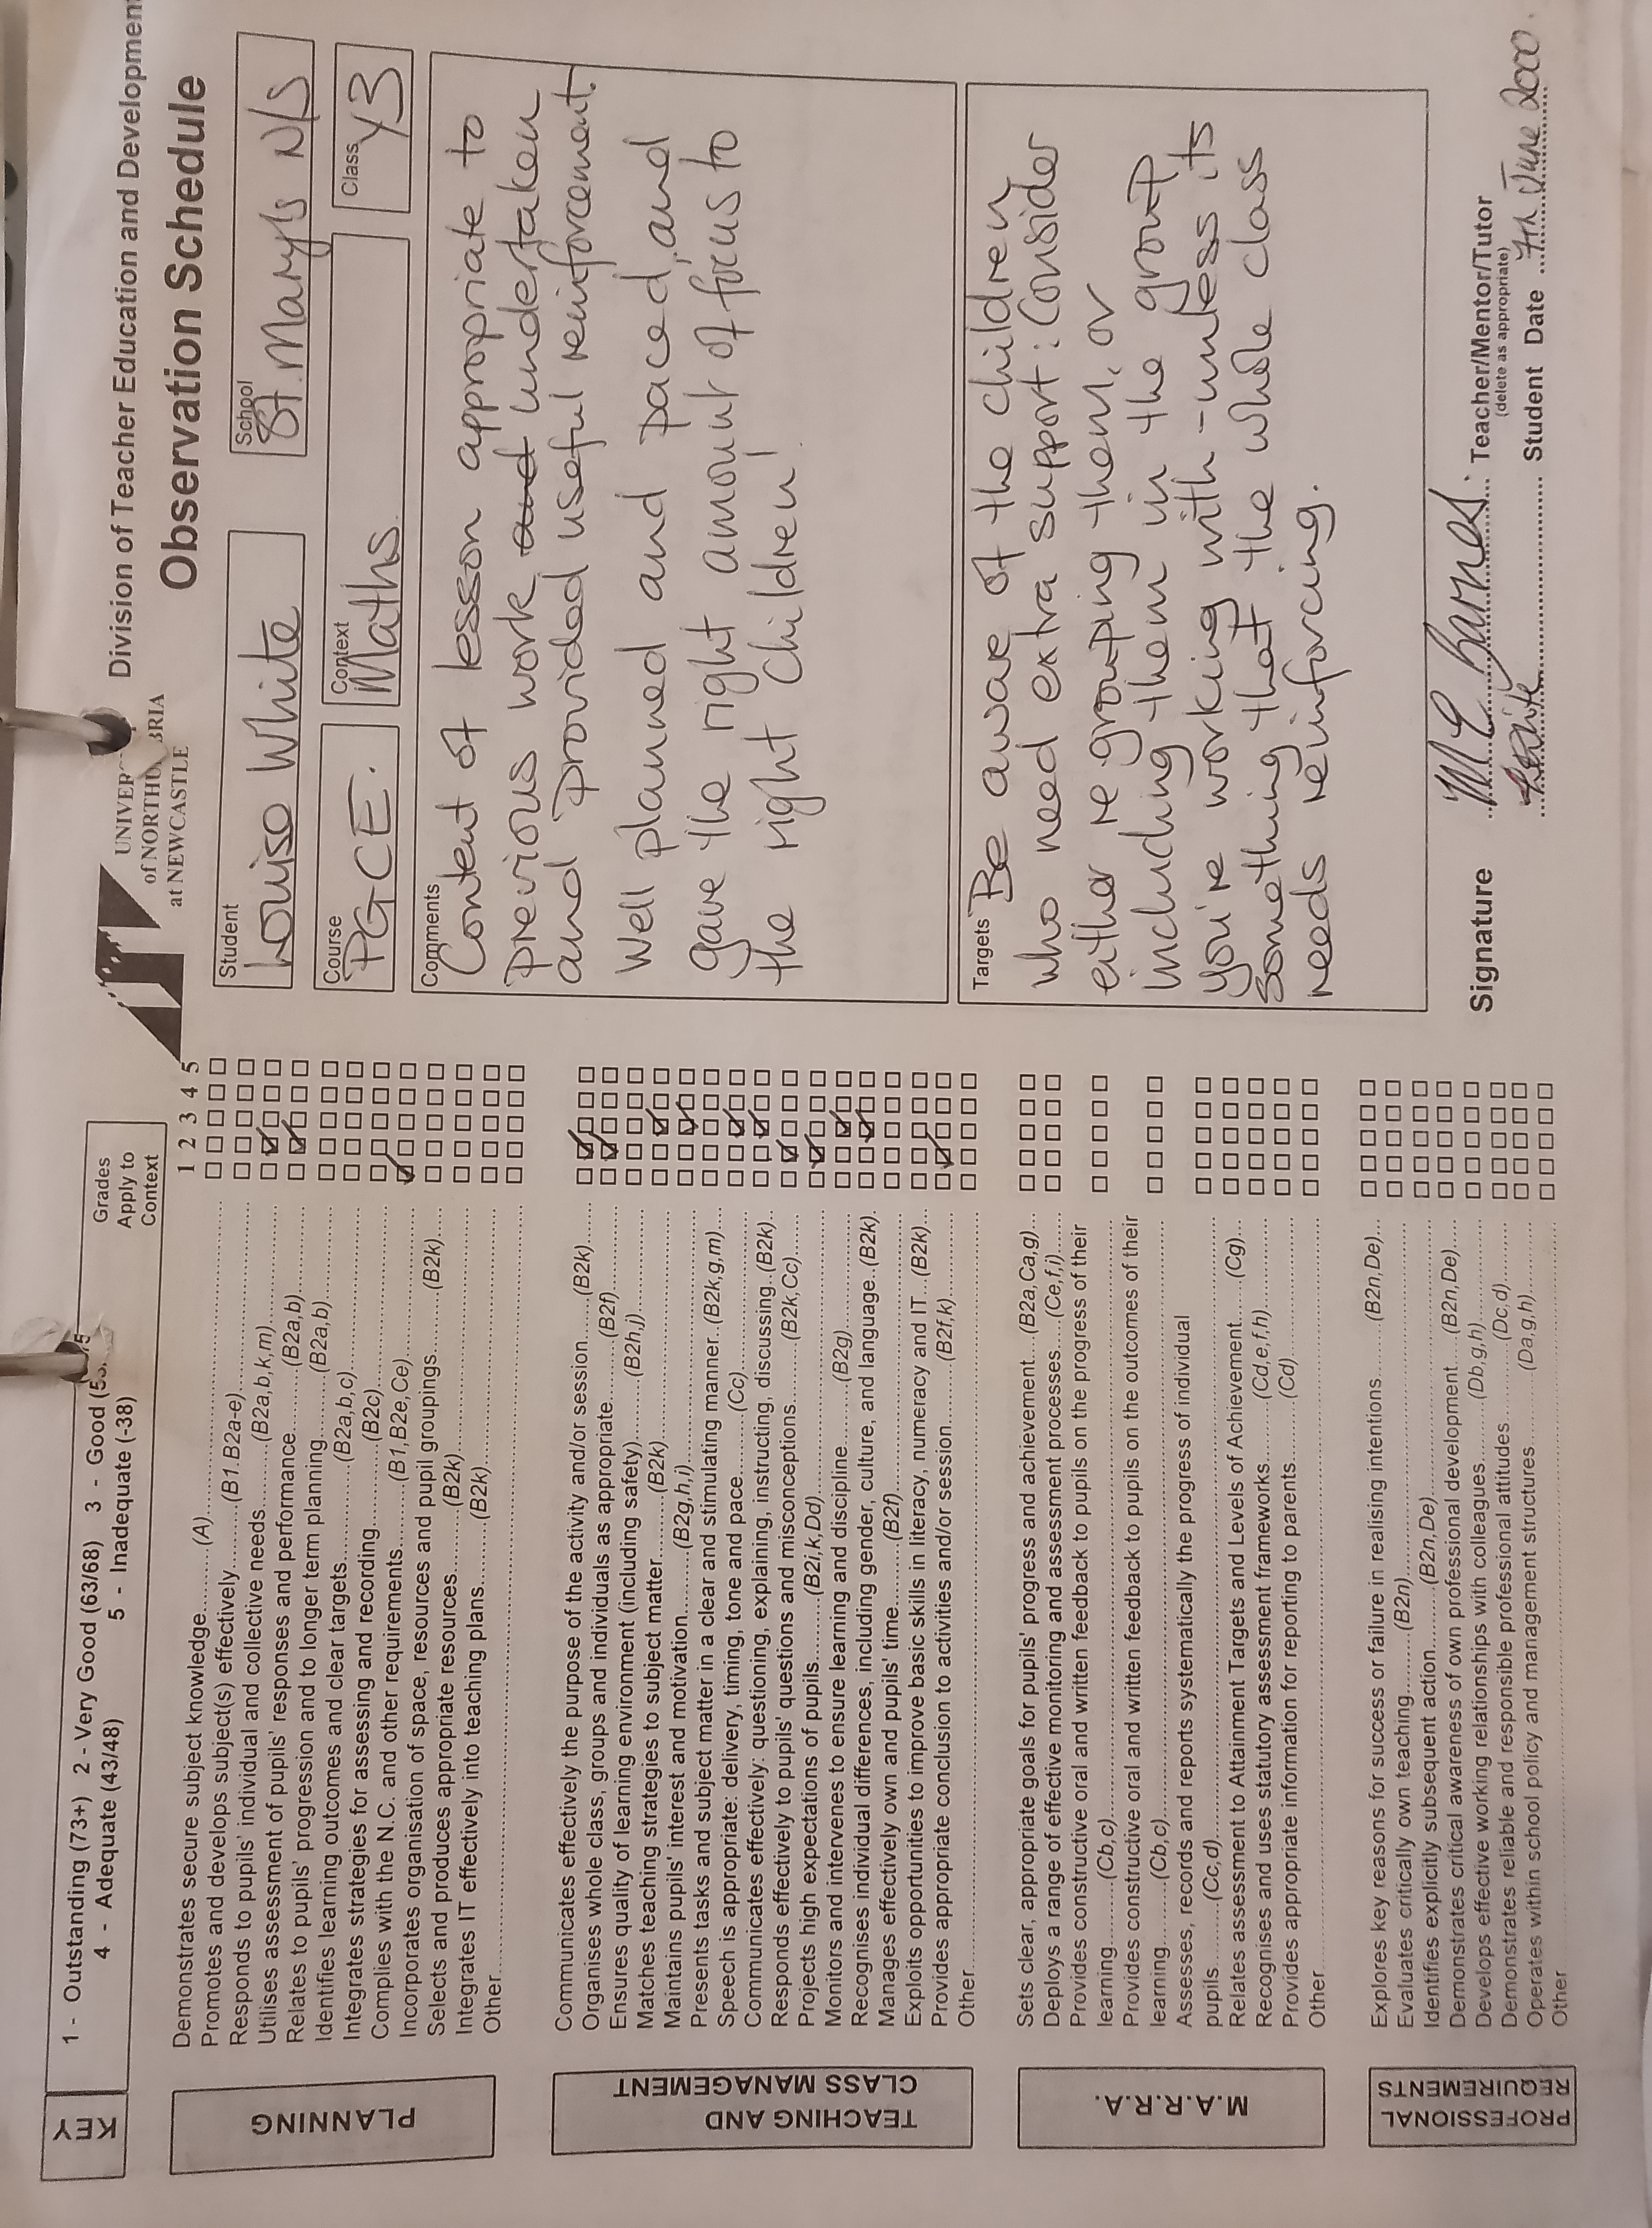 KEY
1 - Outstanding (73+) 2 - Very Good (63/68) 3 - Good (53
4 - Adequate (43/48) 5 - Inadequate (-38)
Grades
Apply to
Context
1 2 3 4 5
PLANNING
Demonstrates secure subject knowledge........(A)
Promotes and develops subject(s) effectively........(B1.B2a-e)
Responds to pupils' individual and collective needs........(B2a,b,k,m)
Utilises assessment of pupils' responses and performance........(B2a,b)
Relates to pupils' progression and longer term planning........(B2a,b)
Identifies learning outcomes and clear targets........(B2a,b,c)
Integrates strategies for assessing and recording........(B2c)
Complies with the N.C. and other requirements........(B1,B2e,Ce)
Incorporates organisation of space, resources and pupil groupings........(B2k)
Selects and produces appropriate resources........(B2k)
Integrates IT effectively into teaching plans........(B2k)
Other
TEACHING AND
CLASS MANAGEMENT
Communicates effectively the purpose of the activity and/or session......(B2k)
Organises whole class, groups and individuals as appropriate........(B2f)
Ensures quality of learning environment (including safety)........(B2h,j)
Matches teaching strategies to subject matter........(B2k)
Maintains pupils' interest and motivation........(B2g,h,i)
Presents tasks and subject matter in a clear and stimulating manner..(B2k,g,m)
Speech is appropriate: delivery, timing, tone and pace........(Cc)
Communicates effectively: questioning, explaining, instructing, discussing..(B2k)
Responds effectively to pupils' questions and misconceptions........(B2k,Cc)
Projects high expectations of pupils........(B2i,k,Dd)
Monitors and intervenes to ensure learning and discipline........(B2g)
Recognises individual differences, including gender, culture, and language..(B2k)
Manages effectively own and pupils' time........(B2f)
Exploits opportunities to improve basic skills in literacy, numeracy and IT...(B2k)
Provides appropriate conclusion to activities and/or session........(B2f,k)
Other
M.A.R.A.
Sets clear, appropriate goals for pupils' progress and achievement...(B2a,Ca,g)
Deploys a range of effective monitoring and assessment processes....(Ce,f,i)
Provides constructive oral and written feedback to pupils on the progress of their
learning........(Cb,c)
Provides constructive oral and written feedback to pupils on the outcomes of their
learning........(Cb,c)
Assesses, records and reports systematically the progress of individual
pupils........(Cc,d)
Relates assessment to Attainment Targets and Levels of Achievement......(Cg)
Recognises and uses statutory assessment frameworks........(Cd,e,f,h)
Provides appropriate information for reporting to parents........(Cd)
Other
PROFESSIONAL
REQUIREMENTS
Explores key reasons for success or failure in realising intentions........(B2n,De)
Evaluates critically own teaching........(B2n)
Identifies explicitly subsequent action........(B2n,De)
Demonstrates critical awareness of own professional development....(B2n,De)
Develops effective working relationships with colleagues........(Db,g,h)
Demonstrates reliable and responsible professional attitudes........(Dc,d)
Operates within school policy and management structures........(Da,g,h)
Other
UNIVER
of NORTHU BRIA
at NEWCASTLE
Division of Teacher Education and Development
Observation Schedule
Student
Louise White
School
St. Mary's N/S
Course
PGCE.
Context
Maths
Class
Y3
Comments
Content of lesson appropriate to
previous work and undertaken
and provided useful reinforcement.
Well planned and paced, and
gave the right amount of focus to
the right children!
Targets
Be aware of the children
who need extra support: Consider
either re grouping them, or
including them in the group
you're working with - unless its
something that the whole class
needs reinforcing.
Signature
M E Barnes
Teacher/Mentor/Tutor
(delete as appropriate)
LWhite
Student
Date 7th June 2000.